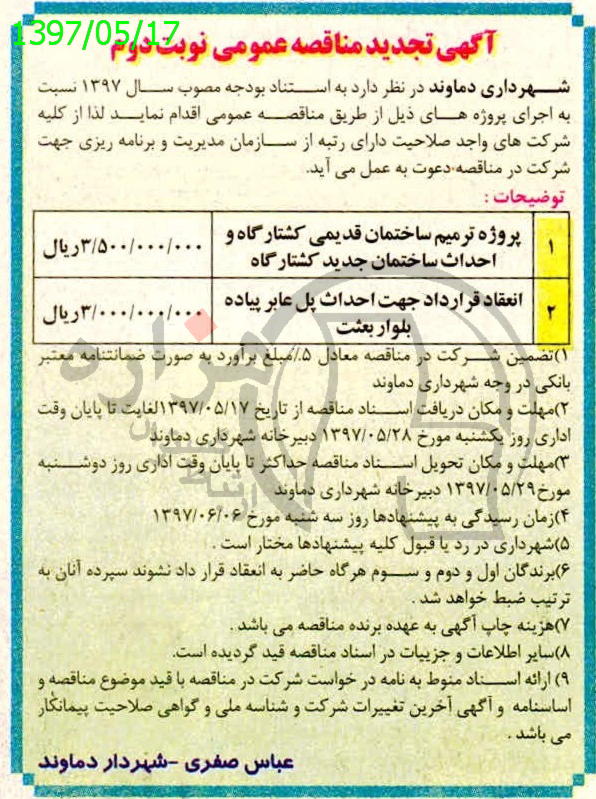 1397/05/17
آگهی تجدید مناقصه عمومی نوبت دوم
شهرداری دماوند در نظر دارد به استناد بودجه مصوب سال ۱۳۹۷ نسبت
به اجرای پروژه های ذیل از طریق مناقصه عمومی اقدام نماید لذا از کلیه
شرکت های واجد صلاحیت دارای رتبه از سازمان مدیریت و برنامه ریزی جهت
شرکت در مناقصه دعوت به عمل می آید.
توضیحات :
۱ پروژه ترمیم ساختمان قدیمی کشتارگاه و ۳/۵۰۰/۰۰۰/۰۰۰ریال
احداث ساختمان جدید کشتارگاه
۲ انعقاد قرارداد جهت احداث پل عابر پیاده ۳/۰۰۰/۰۰۰/۰۰۰ریال
بلوار بعثت
۱)تضمین شرکت در مناقصه معادل ۵٪مبلغ برآورد به صورت ضمانتنامه معتبر
بانکی در وجه شهرداری دماوند
۲)مهلت و مکان دریافت اسناد مناقصه از تاریخ ۱۳۹۷/۰۵/۱۷لغایت تا پایان وقت
اداری روز یکشنبه مورخ ۱۳۹۷/۰۵/۲۸ دبیرخانه شهرداری دماوند
۳)مهلت و مکان تحویل اسناد مناقصه حداکثر تا پایان وقت اداری روز دوشنبه
مورخ۱۳۹۷/۰۵/۲۹ دبیرخانه شهرداری دماوند
۴)زمان رسیدگی به پیشنهادها روز سه شنبه مورخ ۱۳۹۷/۰۶/۰۶
۵)شهرداری در رد یا قبول کلیه پیشنهادها مختار است .
۶)برندگان اول و دوم و سوم هرگاه حاضر به انعقاد قرار داد نشوند سپرده آنان به
ترتیب ضبط خواهد شد .
۷)هزینه چاپ آگهی به عهده برنده مناقصه می باشد .
۸)سایر اطلاعات و جزییات در اسناد مناقصه قید گردیده است.
۹) ارائه اسناد منوط به نامه در خواست شرکت در مناقصه با قید موضوع مناقصه و
اساسنامه و آگهی آخرین تغییرات شرکت و شناسه ملی و گواهی صلاحیت پیمانکار
می باشد .
عباس صفری -شهردار دماوند
هزاره